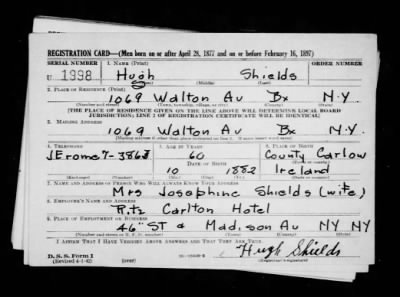 REGISTRATION CARD—(Men born on or after April 28, 1877 and on or before February 16, 1897)
SERIAL NUMBER 1. NAME (Print) ORDER NUMBER
U 1998 Hugh Shields
(First) (Middle) (Last)
2. PLACE OF RESIDENCE (Print)
1069 Walton Av Bx N.Y.
(Number and street) (Town, township, village, or city) (County) (State)
[THE PLACE OF RESIDENCE GIVEN ON THE LINE ABOVE WILL DETERMINE LOCAL BOARD
JURISDICTION; LINE 2 OF REGISTRATION CERTIFICATE WILL BE IDENTICAL]
3. MAILING ADDRESS
1069 Walton Av Bx N.Y.
4. TELEPHONE 5. AGE IN YEARS 6. PLACE OF BIRTH
60 County Carlow
JErome 7-
DATE OF BIRTH
10 1882 Ireland
7. NAME AND ADDRESS OF PERSON WHO WILL ALWAYS KNOW YOUR ADDRESS
Mrs Josephine Shields (wife)
8. EMPLOYER'S NAME AND ADDRESS
Ritz Carlton Hotel
9. PLACE OF EMPLOYMENT OR BUSINESS
46" ST & Madison Av NY NY
(Number and street or R. F. D. number) (Town) (County) (State)
I AFFIRM THAT I HAVE VERIFIED ABOVE ANSWERS AND THAT THEY ARE TRUE.
D. S. S. Form 1
(Revised 4-1-42) Hugh Shields